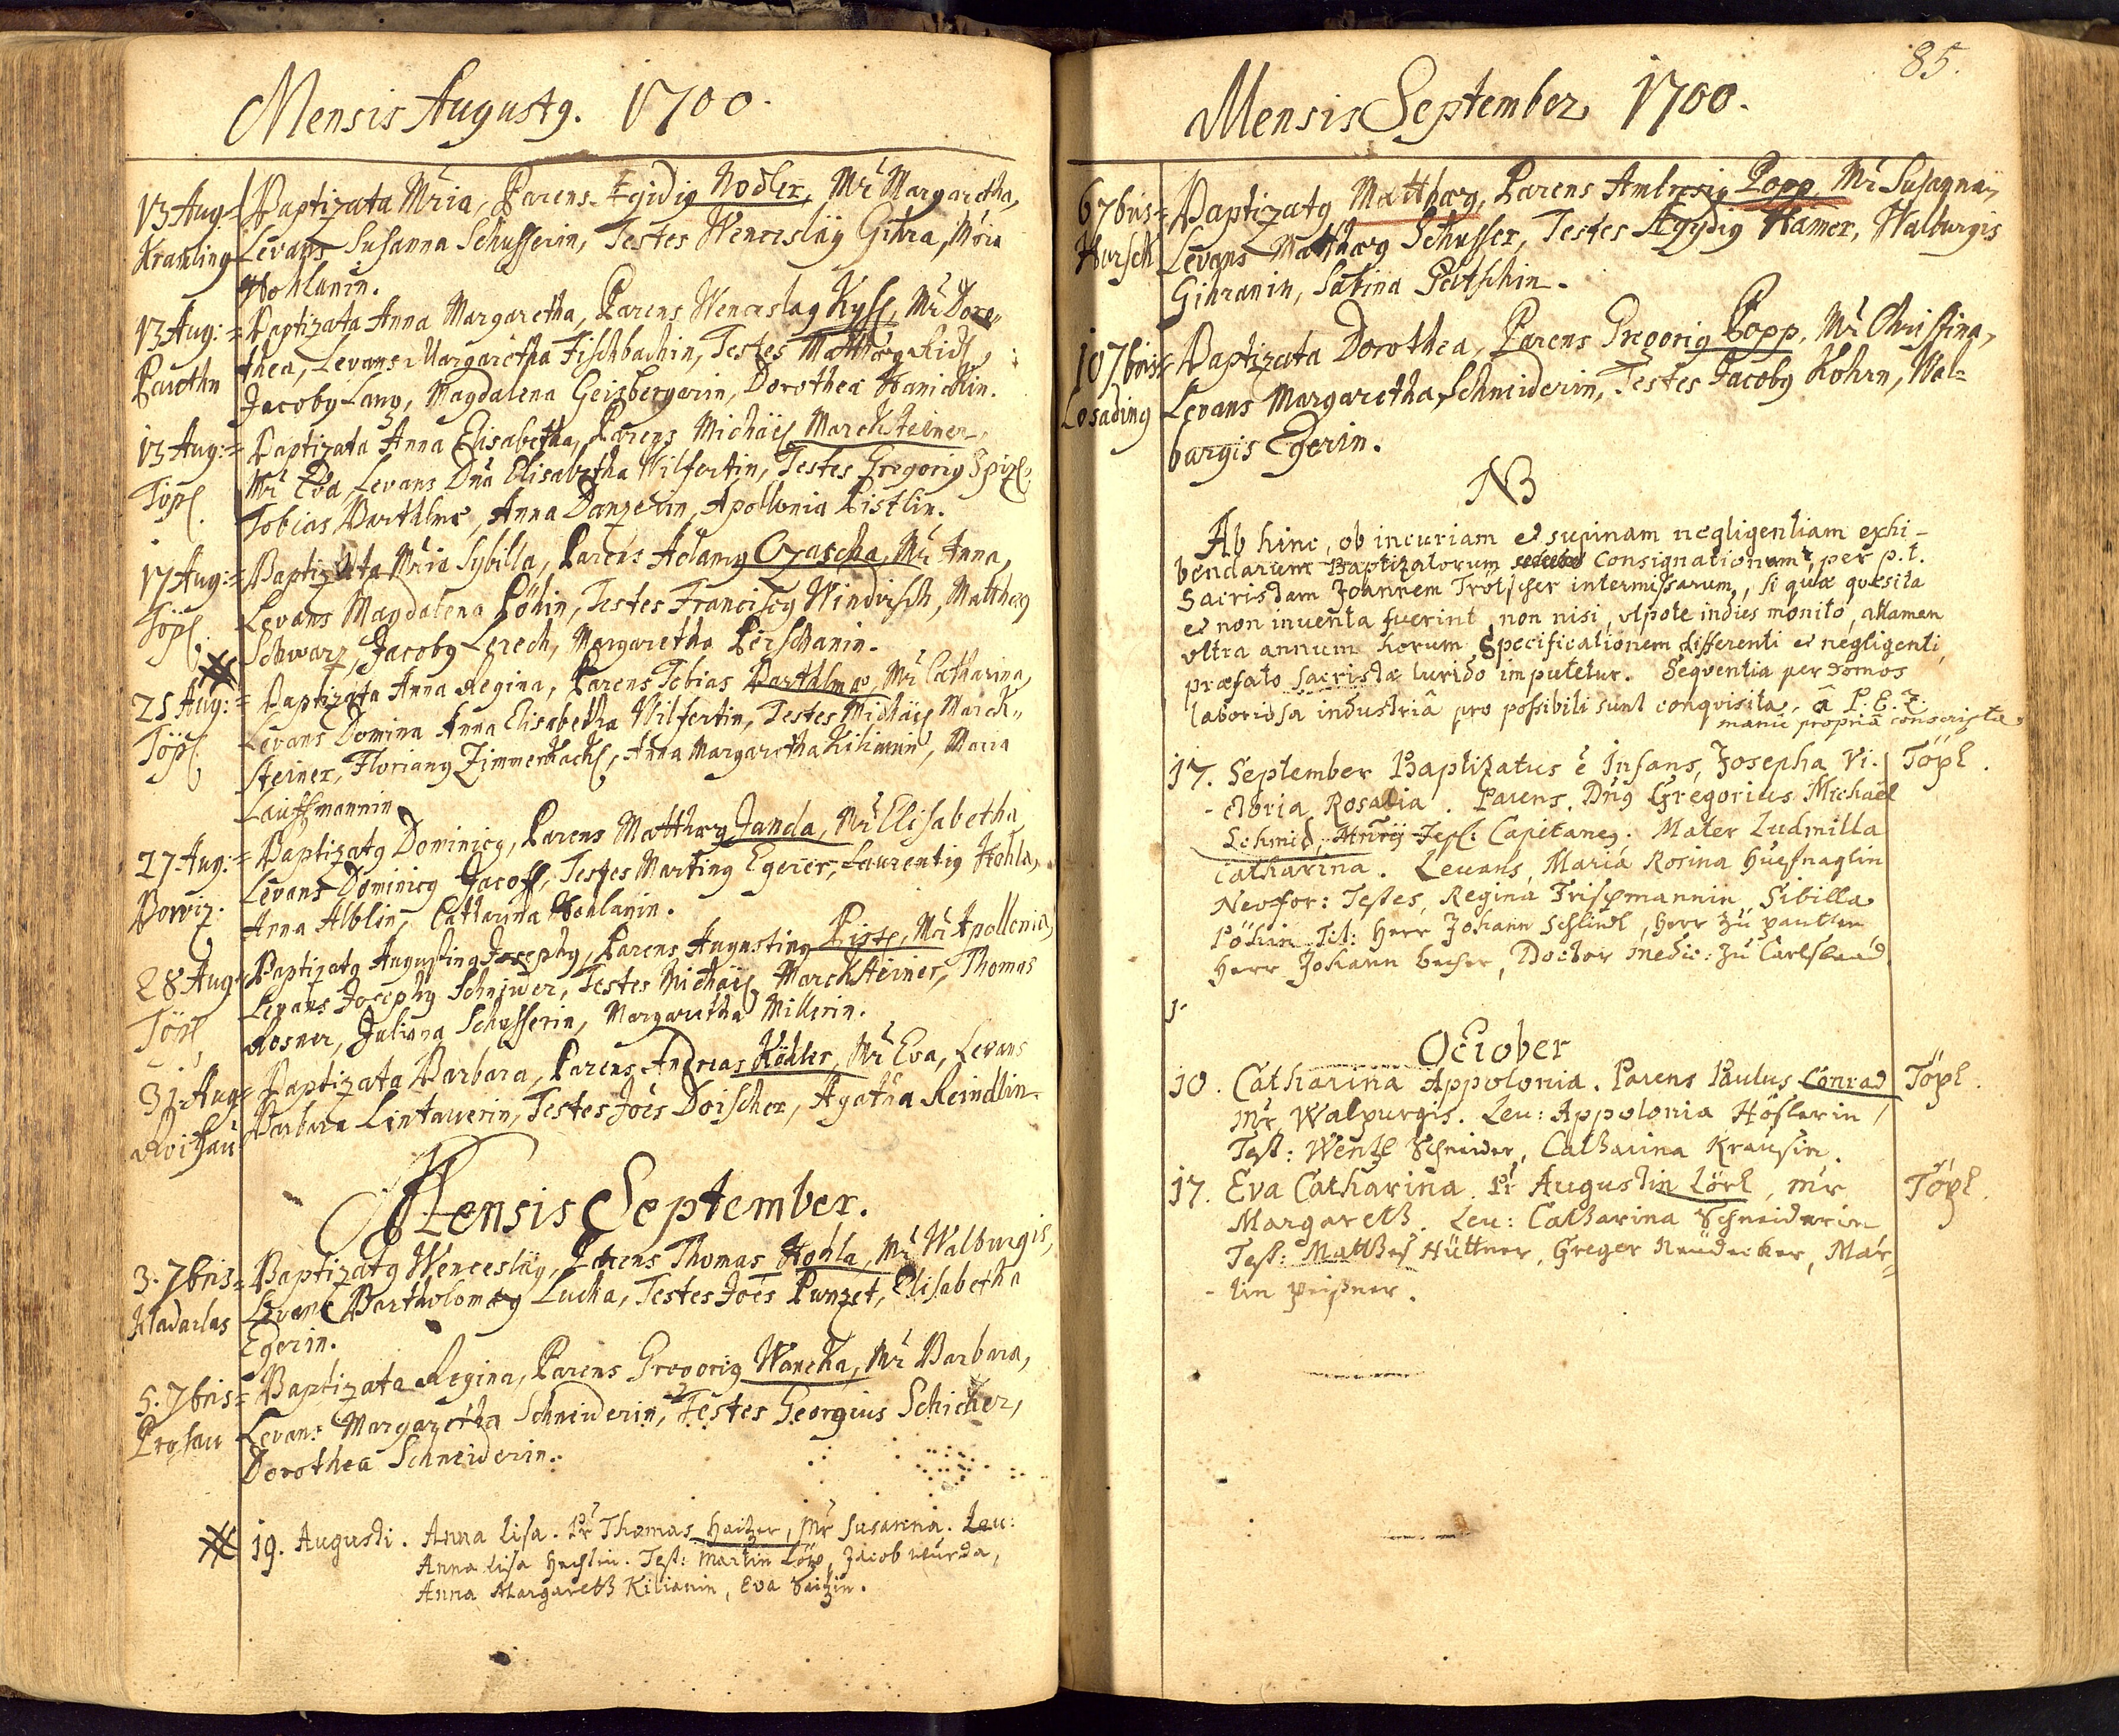 Mensis Augusty. 1700.
13 Aug: = Baptizata Mria, Parens Egidiy Nodler, Mr Margaretha,
Kramling Levans Susanna Schusserin, Testes Wenceslay Gihra, Mria
Hohlanin.
13 Aug: = Baptizata Anna Margaretha, Parens Wenceslay Kyss, Mr Doro„
thea, Levans Margaretha Fischbachin, Testes Matthæy Ridl,
Parothn Jacoby Lang, Magdalena Geisbergerin, Dorothea Hanickin.
13 Aug: = Baptizata Anna Elisabetha, Parens Michäel Marcksteiner,
Töpl. Mr Eva, Levans Dna Elisabetha Wilfertin, Testes Gregoriy Spizl,
Tobias Barthlme, Anna Danzerin, Apollonia Pistlin.
17 Aug: = Baptizata Mria Sybilla, Parens Adamy Czascka, Mr Anna,
Töpl. Levans Magdalena Pöhin, Testes Franciscy Windisch, Matthæy
Schwarz, Jacoby Lerech, Margaretha Perschanin.
25 Aug: = Baptizata Anna Regina, Parens Tobias Barthlmæ, Mr Catharina,
Töpl. Levans Domina Anna Elisabetha Wilfertin, Testes Michäel Marck„
steiner, Floriany Zimmerhackl, Anna Margaretha Kilianin, Maria
Lauffmannin
27 Aug: = Baptizaty Dominicy, Parens Matthæy Janda, Mr Elisabetha
Borwiz. Levans Dominicy Jacoff, Testes Martiny Egerer, Laurentiy Hohla,
Anna Alblin, Catharina Hohlanin.
28 Aug. Baptizaty Augustiny Josephy, Parens Augustiny Pistl, Mr Apollonia,
Töpl Levans Josephy Schneider, Testes Michäel Marcksteiner, Thomas
Rosner, Juliana Schusserin, Margaretha Millerin.
31. Aug: Baptizata Barbara, Parens Andreas Köhler, Mr Eva, Levans
Roithau Barbara Lintauerin, Testes Joes Doischer, Agatha Reindlin.
Mensis September.
3. 7bris = Baptizaty Wenceslay, Parens Thomas Hohla, Mr Walburgis,
Hadarlas Levans Bartholomæy Lucka, Testes Joes Punzet, Elisabetha
Egerin.
5. 7bris = Baptizata Regina, Parens Gregoriy Wancka, Mr Barbara,
Prosau Levans Margaretha Schneiderin, Testes Georgius Schicker,
Dorothea Schneiderin.
19. Augusti. Anna Lisa. Pr Thomas Haitzer, Mr Susanna. Leu:
Anna Lisa Hechlin. Test: Martin Löw, Jacob wurda,
Anna Margareth Kilianin, Eva Saitzin.
85.
Mensis September 1700.
6 7bris = Baptizaty Matthæy, Parens Ambrosiy Popp, Mr Susanna,
Hurschk Levans Matthæy Schusser, Testes Ægydiy Hamer, Walburgis
Gihranin, Sabina Pätschin.
10 7bris = Baptizata Dorothea, Parens Gregoriy Popp, Mr Christina,
Losading Levans Margaretha Schneiderin, Testes Jacoby Kohrn, Wal=
burgis Egerin.
NB
Ab hinc, ob incuriam et supinam negligentiam exhi-
bendarum Baptizatorum Consignationum, per p.t.
Sacristam Joannem Trötscher intermissarum, si quæ quæsita
et non inventa fuerint, non nisi, utpote indies monito, attamen
ultra annum horum Specificationem differenti et negligenti,
præfato Sacristæ lurido imputetur. Sequentia per domos
laboriosa industriâ pro possibili sunt conquisita, â P. E. Z.
manu propriâ conscripta
17. September Baptizatus è Infans, Josepha Vi- Töpl.
-ctoria Rosalia. Parens. Dny Gregorius Michael
Schmid, Mnrÿ Tepl: Capitaney. Mater Ludmilla
Catharina. Leuans, Maria Rosina Huefnaglin
Neoffor: Testes, Regina Frispmannin, Sibilla
Pöhin Tit: Herr Johann Schlindl, Herr zu pauthen
Herr Johann becher, Doctor medic: zu Carlsbaad.
October
10. Catharina Appolonia. Parens Paulus Conrad Töpl.
Mr Walpurgis. Leu: Appolonia Höflerin
Test: Wentzl Schneider, Catharina Krausin.
17. Eva Catharina. Pr Augustin Lörl, Mr Töpl.
Margareth. Leu: Catharina Schneiderin
Test: Matthes Hüttner, Greger Neudecker, Mar=
-tin peißner.